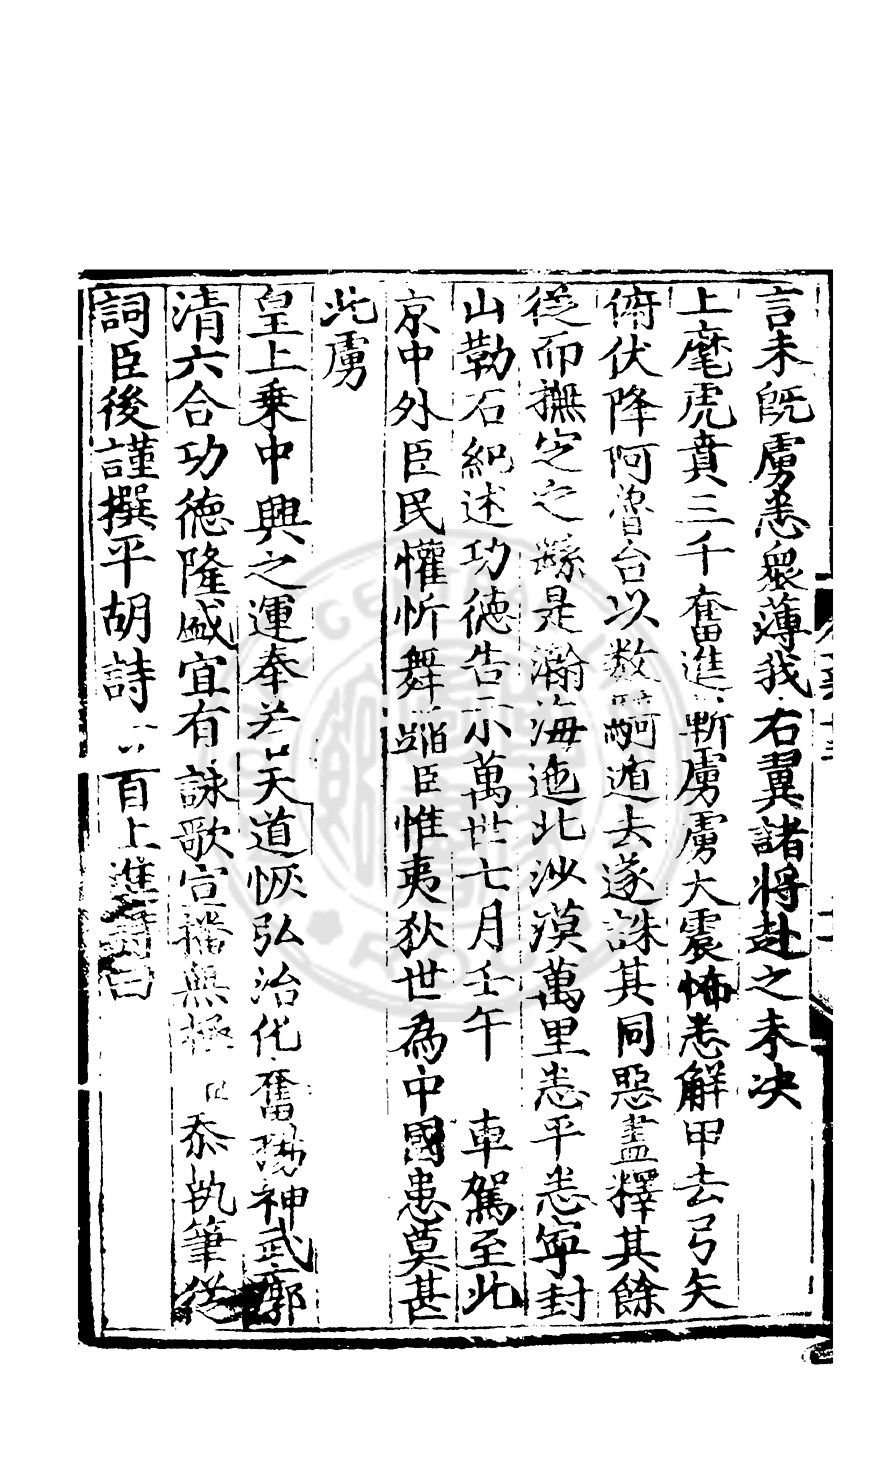 言未旣虜悉衆薄我右翼諸將赴之未决
上麾虎賁三千奮進斬虜虜大震怖悉解甲去弓矢
俯伏降阿魯台以数騎遁去遂誅其同惡盡釋其餘
從而撫定之繇是瀚海迤北沙漠萬里悉平悉寧封
山勒石紀述功德告示萬世七月壬午 車駕至北
京中外臣民懽忻舞蹈臣惟夷狄世為中國患莫甚
此虜
皇上乗中興之運奉若天道恢弘治化奮揚神武廓
清六合功德隆盛宜有詠歌宣播無極 忝執筆從
詞臣後謹撰平胡詩 百上進